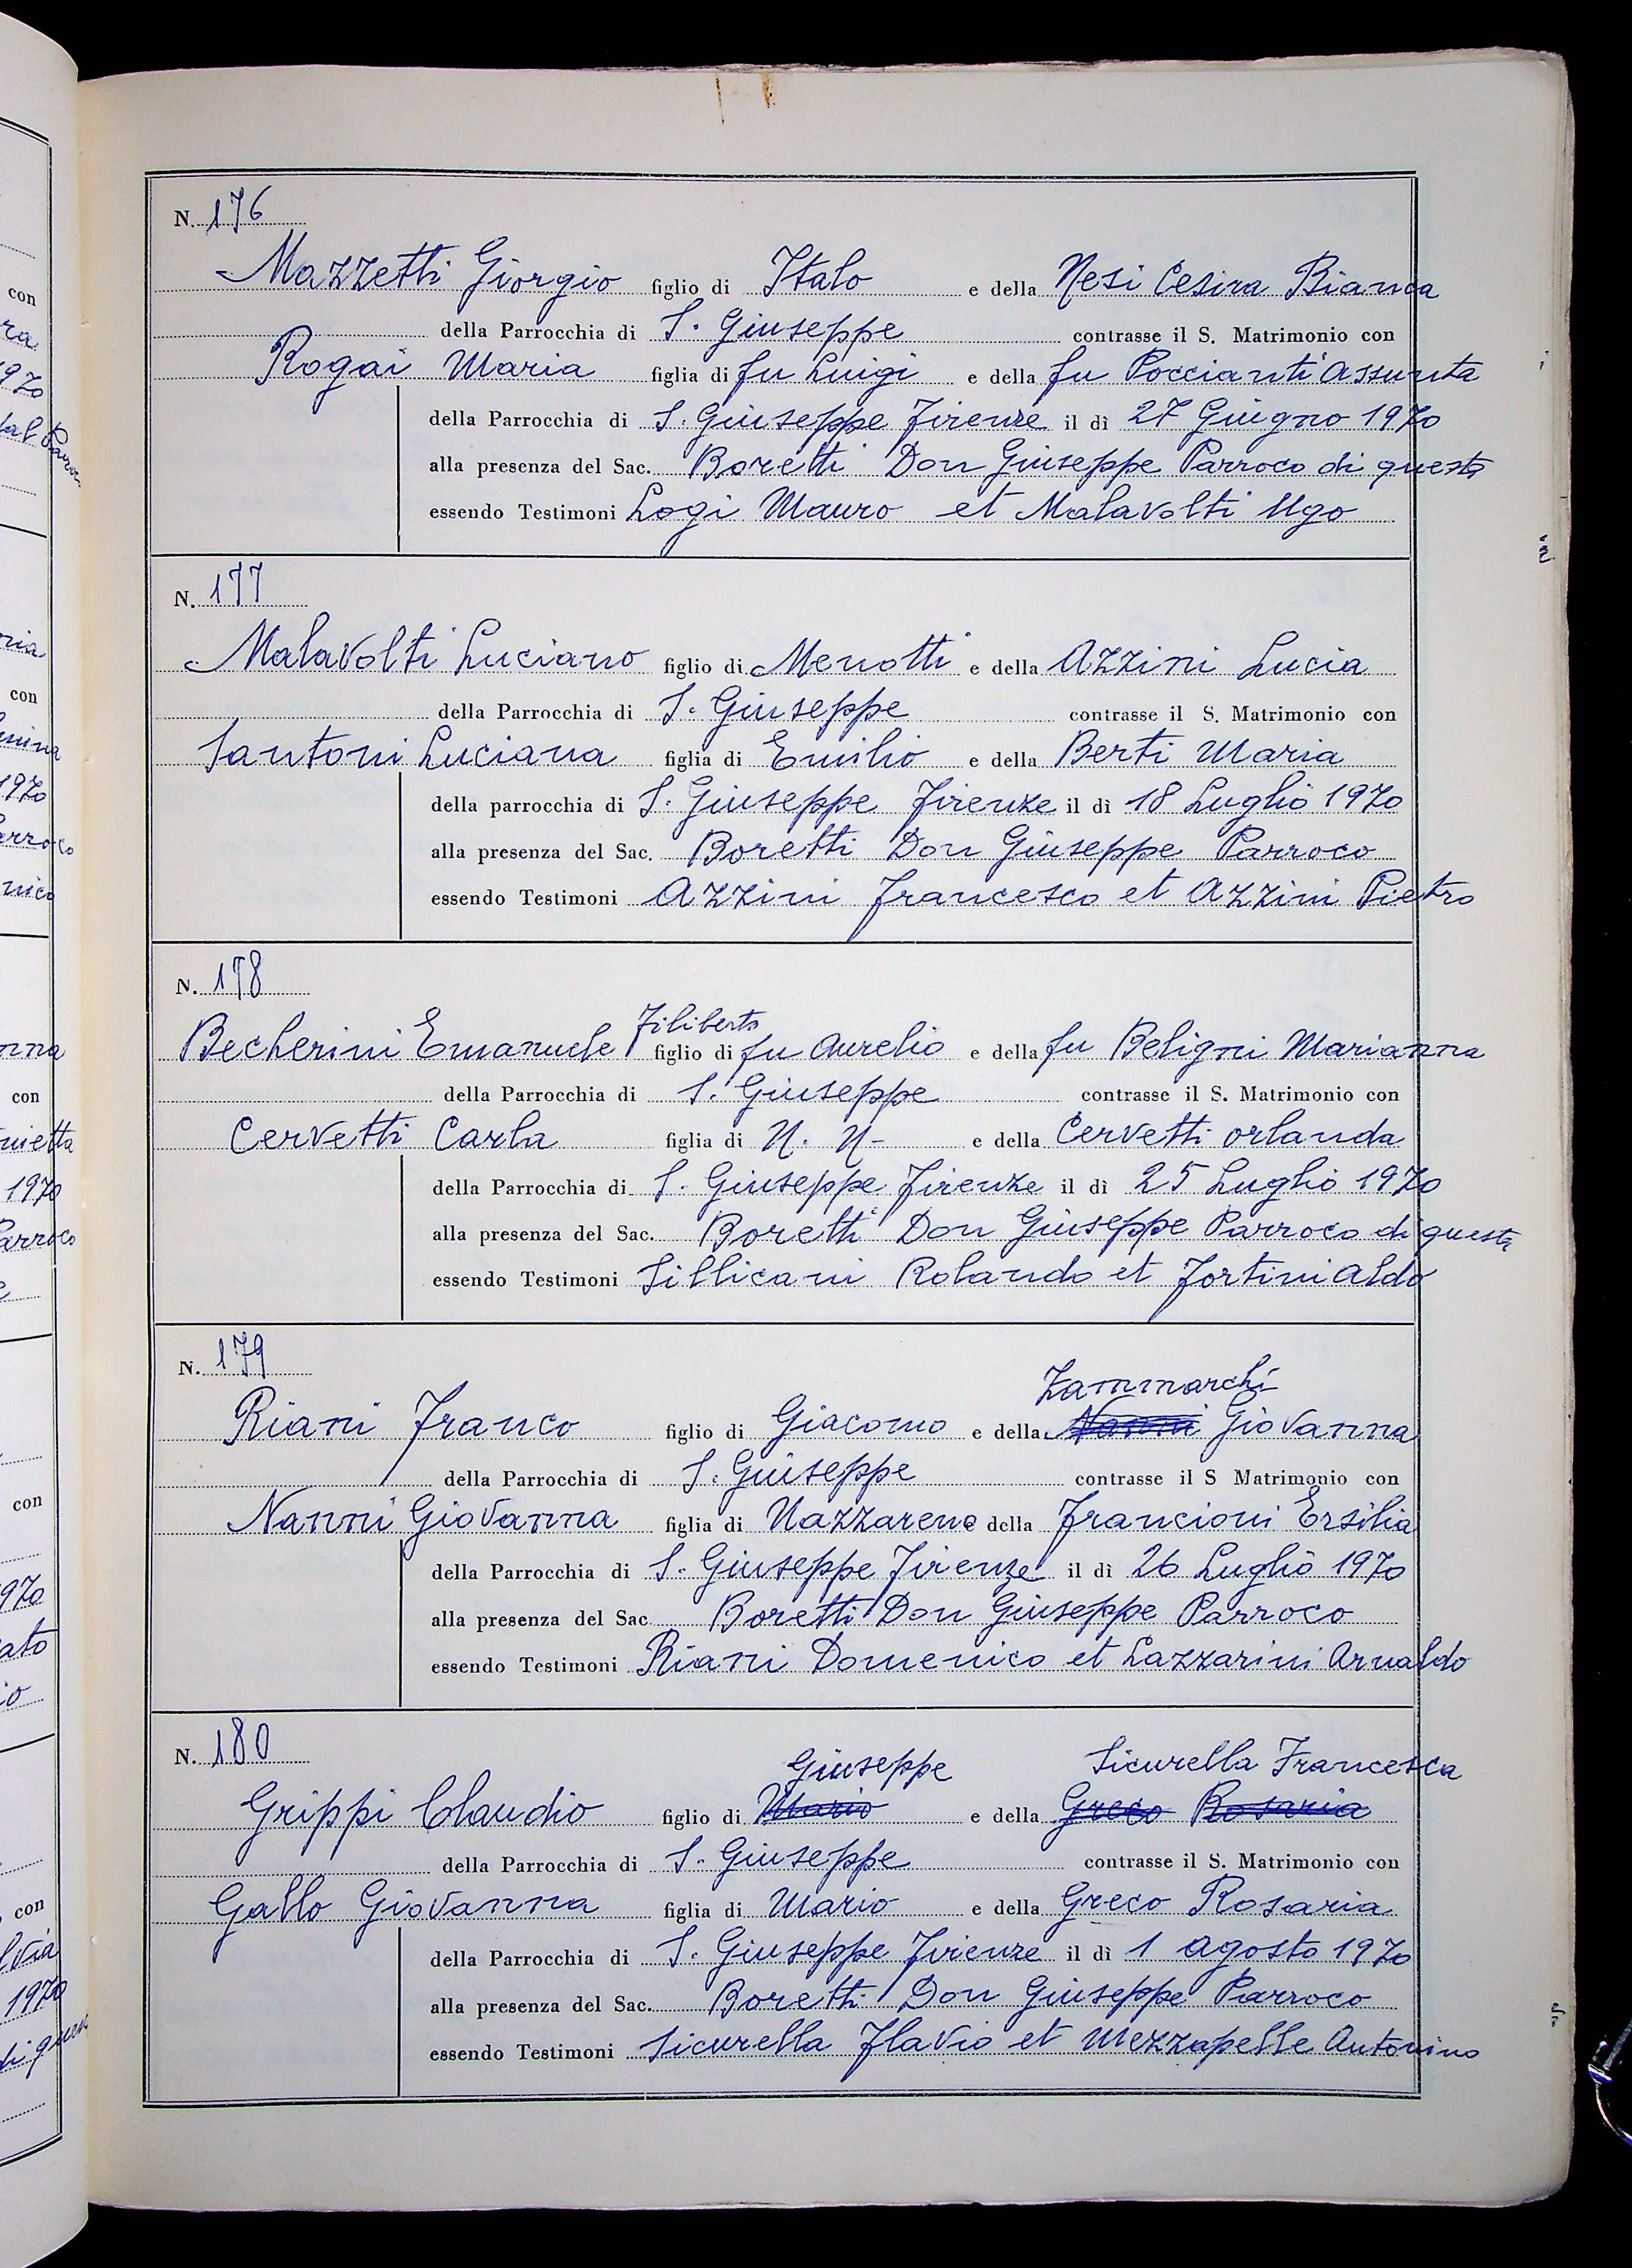 N. 176
Mazzetti Giorgio figlio di Italo e della Nesi Cesira Bianca
della Parrocchia di S. Giuseppe contrasse il S. Matrimonio con
Rogai Maria figlia di fu Luigi e della fu Poccianti Assunta
della Parrocchia di S. Giuseppe Firenze il dì 27 Giugno 1970
alla presenza del Sac. Boretti Don Giuseppe Parroco di questa
essendo Testimoni Logi Mauro et Malavolti Ugo
N. 177
Malavolti Luciano figlio di Menotti e della Azzini Lucia
della Parrocchia di S. Giuseppe contrasse il S. Matrimonio con
Santoni Luciana figlia di Emilio e della Berti Maria
della parrocchia di S. Giuseppe Firenze il dì 18 Luglio 1970
alla presenza del Sac. Boretti Don Giuseppe Parroco
essendo Testimoni Azzini Francesco et Azzini Pietro
N. 178
Filiberto
Becherini Emanuele figlio di fu Aurelio e della fu Beligni Marianna
della Parrocchia di S. Giuseppe contrasse il S. Matrimonio con
Cervetti Carla figlia di N. N- e della Cervetti Orlanda
della Parrocchia di S. Giuseppe Firenze il dì 25 Luglio 1970
alla presenza del Sac. Boretti Don Giuseppe Parroco di questa
essendo Testimoni Sillicani Rolando et Fortini Aldo
N. 179
Zammarchi
Riani Franco figlio di Giacomo e della Nanni Giovanna
della Parrocchia di S. Giuseppe contrasse il S Matrimonio con
Nanni Giovanna figlia di Nazzareno e della Francioni Ersilia
della Parrocchia di S. Giuseppe Firenze il dì 26 Luglio 1970
alla presenza del Sac. Boretti Don Giuseppe Parroco
essendo Testimoni Riani Domenico et Lazzarini Arnaldo
N. 180
Giuseppe Sicurella Francesca
Grippi Claudio figlio di Mario e della Greco Rosaria
della Parrocchia di S. Giuseppe contrasse il S. Matrimonio con
Gallo Giovanna figlia di Mario e della Greco Rosaria
della Parrocchia di S. Giuseppe Firenze il dì 1 Agosto 1970
alla presenza del Sac. Boretti Don Giuseppe Parroco
essendo Testimoni Sicurella Flavio et Mezzapelle Antonino